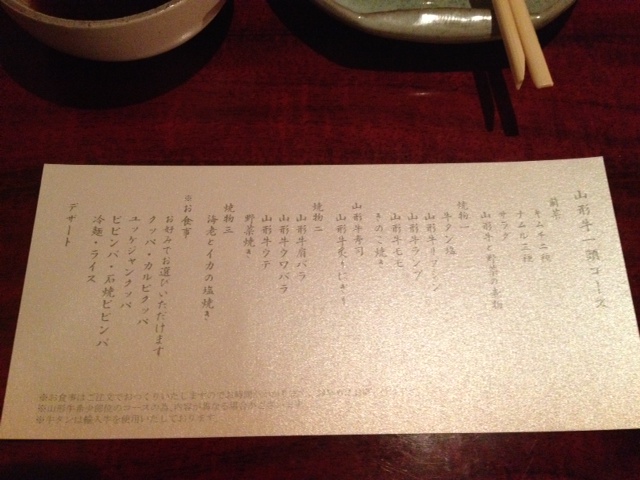 山形牛一頭コース
前菜
キムチ二種
ナムル三種
サラダ
山形牛と野菜の煮物
焼物一
牛タン塩
山形牛
山形牛ランプ
山形牛モモ
きのこ焼き
山形牛寿司
山形牛炙りにぎり
焼物二
山形牛肩バラ
山形牛クワバラ
山形牛ウデ
野菜焼き
焼物三
海老とイカの塩焼き
※お食事
お好みでお選びいただけます
クッパ・カルビクッパ
ユッケジャンクッパ
ビビンバ・石焼ビビンバ
冷麺・ライス
デザート
※お食事はご注文でおつくりいたしますのでお時間
※山形牛希少部位のコースの為、内容が異なる場合がございます
※牛タンは輸入牛を使用いたしております